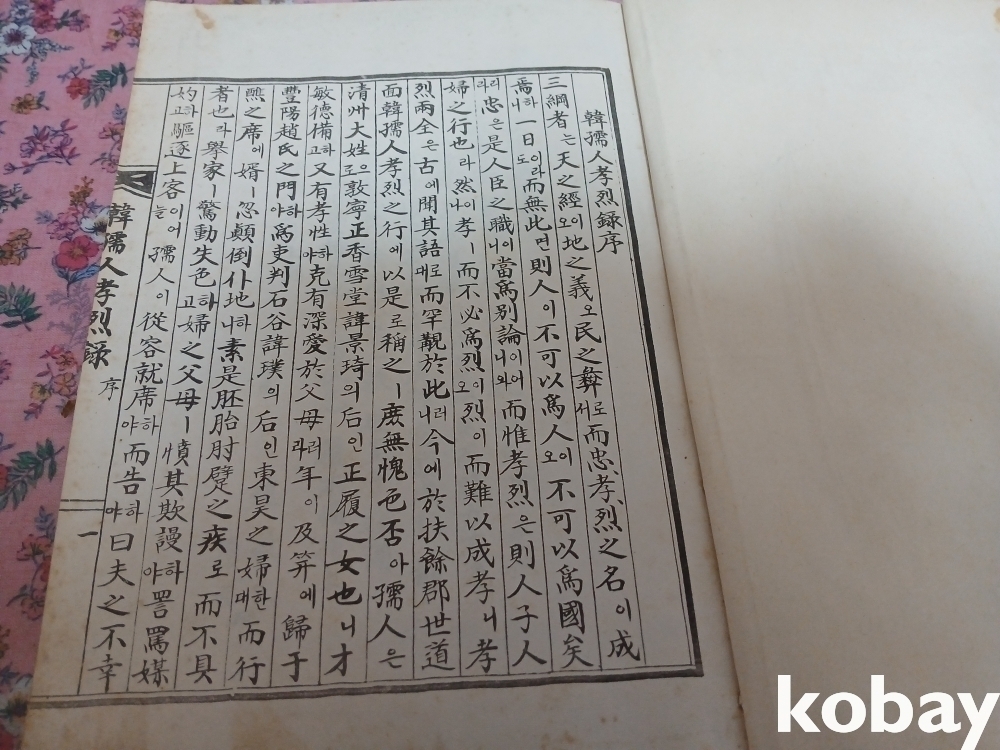 韓孺人孝烈錄序
三綱者는天之經이오地之義오民之彛로서而忠、孝、烈之名이成
焉하니一日이라도而無此면則人이不可以爲人이오不可以爲國矣
라리忠은是人臣之職이니當爲別論이어니와而惟孝烈은則人子人
婦之行也라然이나孝ㅣ而不必爲烈이오烈이而難以成孝ㅣ니孝
烈兩全은古에聞其語로대而罕覯於此러니今에於扶餘郡世道
而韓孺人孝烈之行에以是로稱之ㅣ庶無愧色否아孺人은
淸州大姓으로敦寧正香雪堂諱景琦의后인正履之女也ㅣ니才
敏德備하고又有孝性하야克有深愛於父母러라年이及笄에歸于
豐陽趙氏之門하야爲吏判石谷諱璞의后인東昊之婦한대而行
醮之席에婿ㅣ忽顚倒仆地하나素是胚胎肘躄之疾로而不具
者也라擧家ㅣ驚動失色하고婦之父母ㅣ憤其欺謾하야詈罵媒
妁하고驅逐上客이어늘孺人이從容就席하야而告하야曰夫之不幸
韓孺人孝烈錄
序
一
kobay